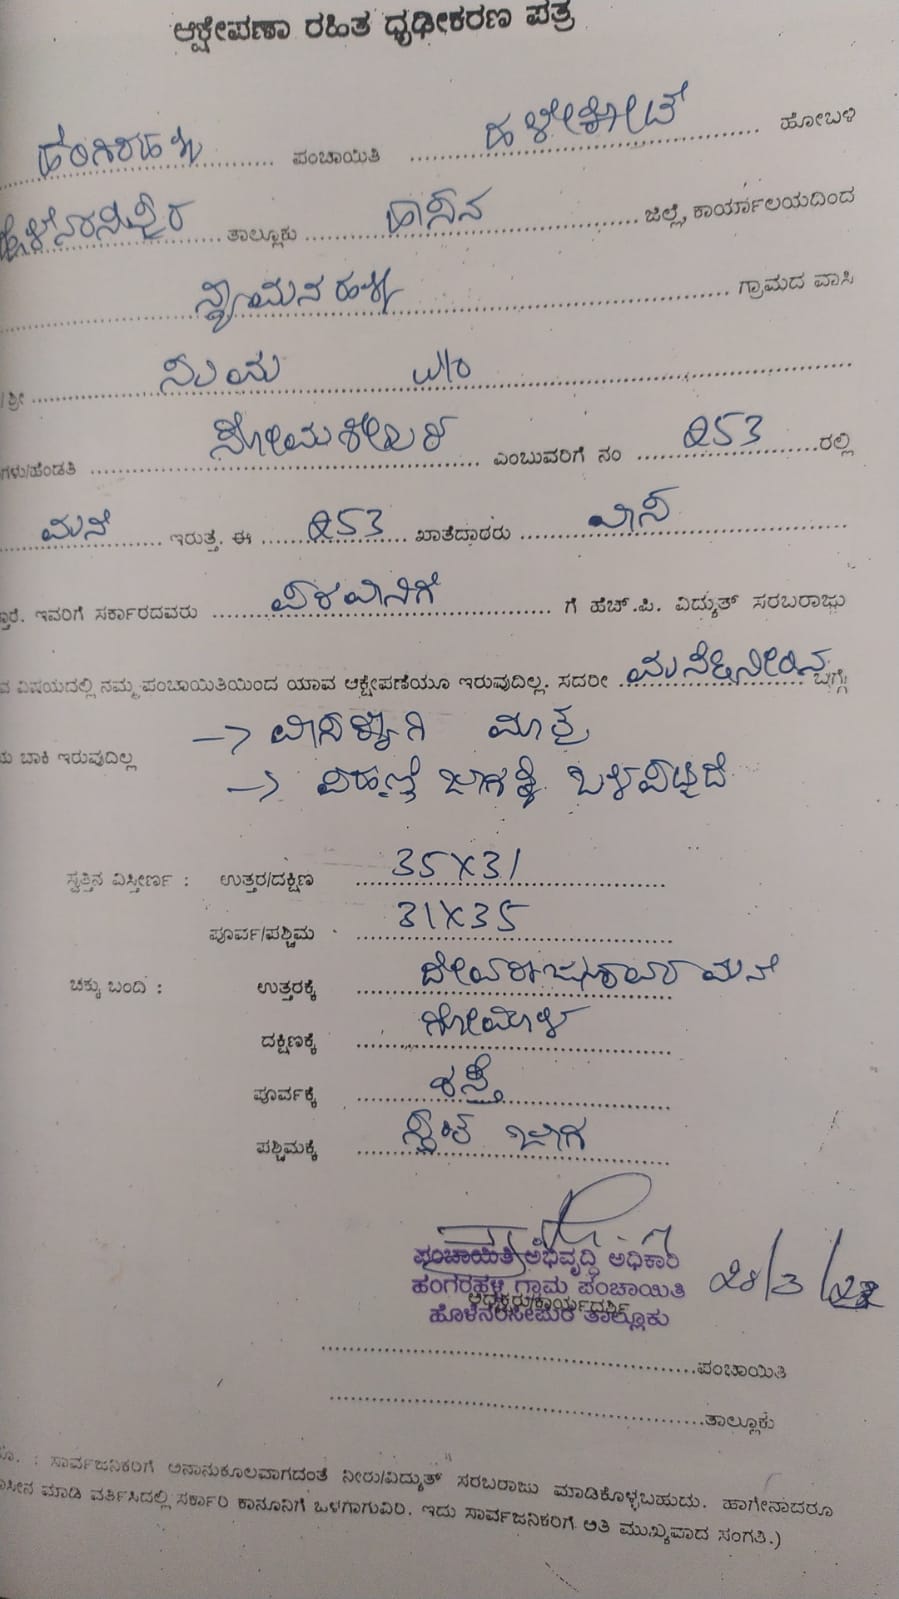 ಆಕ್ಷೇಪಣಾ ರಹಿತ ಧೃಢೀಕರಣ ಪತ್ರ
ಹಂಗರಹಳ್ಳಿ ಪಂಚಾಯಿತಿ ಹಳೇಕೋಟೆ ಹೋಬಳಿ
ಹೊಳೆನರಸೀಪುರ ತಾಲ್ಲೂಕು ಹಾಸನ ಜಿಲ್ಲೆ, ಕಾರ್ಯಾಲಯದಿಂದ
ಗ್ರಾಮದ ವಾಸಿ
/ಶ್ರೀ w/o
ಗಳು/ಹೆಂಡತಿ ಸೋಮಶೇಖರ ಎಂಬುವರಿಗೆ ನಂ 253 ರಲ್ಲಿ
ಮನೆ ಇರುತ್ತೆ. ಈ 253 ಖಾತೆದಾರರು ವಾಸ
ಇವರಿಗೆ ಸರ್ಕಾರದವರು ಗೆ ಹೆಚ್.ಪಿ. ವಿದ್ಯುತ್ ಸರಬರಾಜು
ವಿಷಯದಲ್ಲಿ ನಮ್ಮ ಪಂಚಾಯಿತಿಯಿಂದ ಯಾವ ಆಕ್ಷೇಪಣೆಯೂ ಇರುವುದಿಲ್ಲ. ಸದರೀ ಬಗ್ಗೆ
ಬಾಕಿ ಇರುವುದಿಲ್ಲ → ವಾಸಕ್ಕಾಗಿ ಮಾತ್ರ
→ ಜಾಗಕ್ಕೆ ಒಳಪಟ್ಟಿದೆ
ಸ್ವತ್ತಿನ ವಿಸ್ತೀರ್ಣ : ಉತ್ತರ/ದಕ್ಷಿಣ 35X31
ಪೂರ್ವ/ಪಶ್ಚಿಮ 31X35
ಚಕ್ಕು ಬಂದಿ : ಉತ್ತರಕ್ಕೆ ಮನೆ
ದಕ್ಷಿಣಕ್ಕೆ ಗೋಮಾಳ
ಪೂರ್ವಕ್ಕೆ ರಸ್ತೆ
ಪಶ್ಚಿಮಕ್ಕೆ ಸ್ವಂತ ಜಾಗ
ಪಂಚಾಯಿತಿ ಅಭಿವೃದ್ಧಿ ಅಧಿಕಾರಿ
ಹಂಗರಹಳ್ಳಿ ಗ್ರಾಮ ಪಂಚಾಯಿತಿ 28/3/22
ಅಧ್ಯಕ್ಷರು/ಕಾರ್ಯದರ್ಶಿ
ಹೊಳೆನರಸೀಪುರ ತಾಲ್ಲೂಕು
ಪಂಚಾಯಿತಿ
ತಾಲ್ಲೂಕು
: ಸಾರ್ವಜನಿಕರಿಗೆ ಅನಾನುಕೂಲವಾಗದಂತೆ ನೀರು/ವಿದ್ಯುತ್ ಸರಬರಾಜು ಮಾಡಿಕೊಳ್ಳಬಹುದು. ಹಾಗೇನಾದರೂ
ಮಾಡಿ ವರ್ತಿಸಿದಲ್ಲಿ ಸರ್ಕಾರಿ ಕಾನೂನಿಗೆ ಒಳಗಾಗುವಿರಿ. ಇದು ಸಾರ್ವಜನಿಕರಿಗೆ ಅತಿ ಮುಖ್ಯವಾದ ಸಂಗತಿ.)